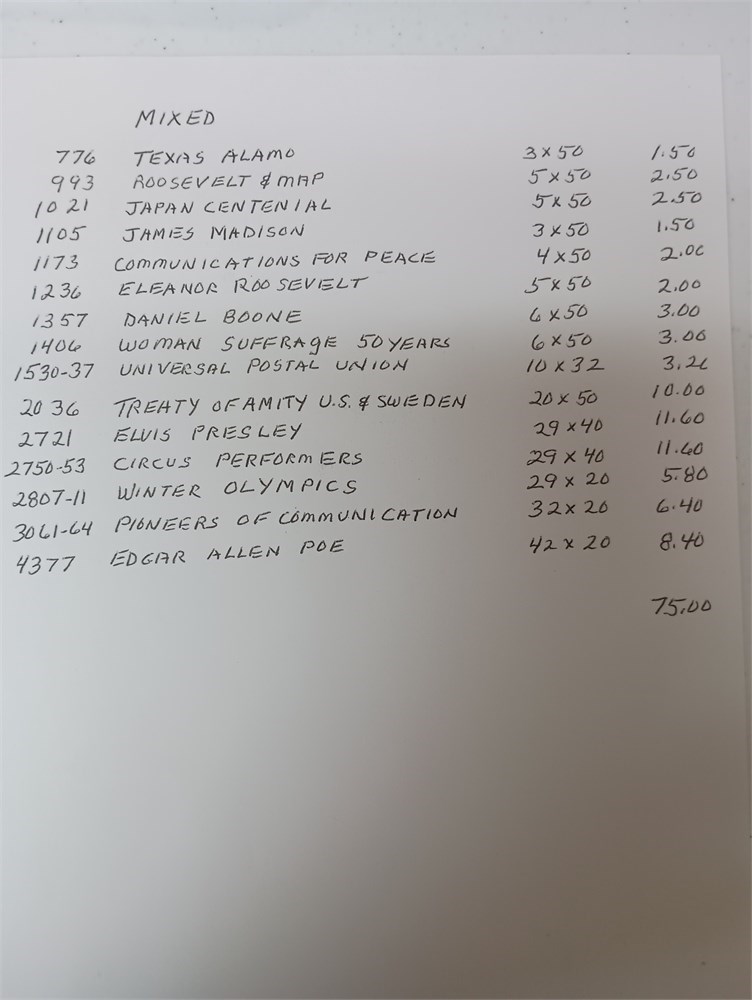 MIXED
776 TEXAS ALAMO 3 x 50 1.50
993 ROOSEVELT & MAP 5 x 50 2.50
1021 JAPAN CENTENIAL 5 x 50 2.50
1105 JAMES MADISON 3 x 50 1.50
1173 COMMUNICATIONS FOR PEACE 4 x 50 2.00
1236 ELEANOR ROOSEVELT 5 x 50 2.00
1357 DANIEL BOONE 6 x 50 3.00
1406 WOMAN SUFFRAGE 50 YEARS 6 x 50 3.00
1530-37 UNIVERSAL POSTAL UNION 10 x 32 3.20
2036 TREATY OF AMITY U.S. & SWEDEN 20 x 50 10.00
2721 ELVIS PRESLEY 29 x 40 11.60
2750-53 CIRCUS PERFORMERS 29 x 40 11.60
2807-11 WINTER OLYMPICS 29 x 20 5.80
3061-64 PIONEERS OF COMMUNICATION 32 x 20 6.40
4377 EDGAR ALLEN POE 42 x 20 8.40
75.00